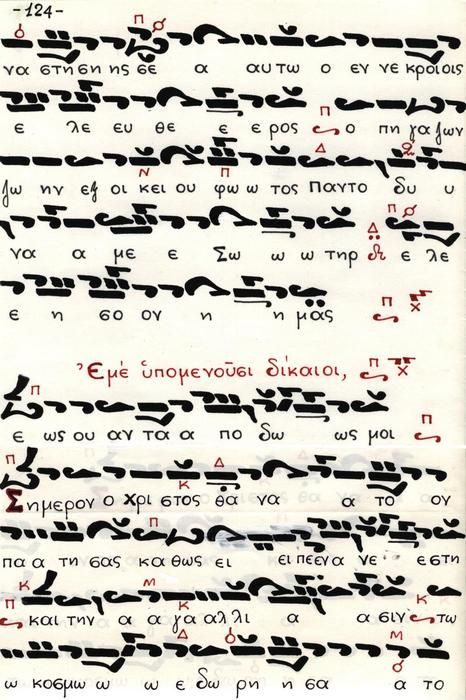 -124-
να στη ση ης σε α αυ τω ο εν νε κροι οις
ε λε ευ θε ε ε ρος ο πη γα ζων
ζω ην εξ οι κει ου φω ω τος Παντο δυ υ
να α με ε Σω ω ω τηρ ε λε
ε η σο ον η η μας
Ἐμέ ὑπομενοῦσι δίκαιοι,
ε ως ου αν τα α πο δω ως μοι
Σημερον ο χρι στος θα να α το ον
πα α τη σας κα θως ει ει πεενα νε ε στη
και την α α γα αλ λι α α σιν τω
ω κοσμω ω ω ε δω ρη η σα α το